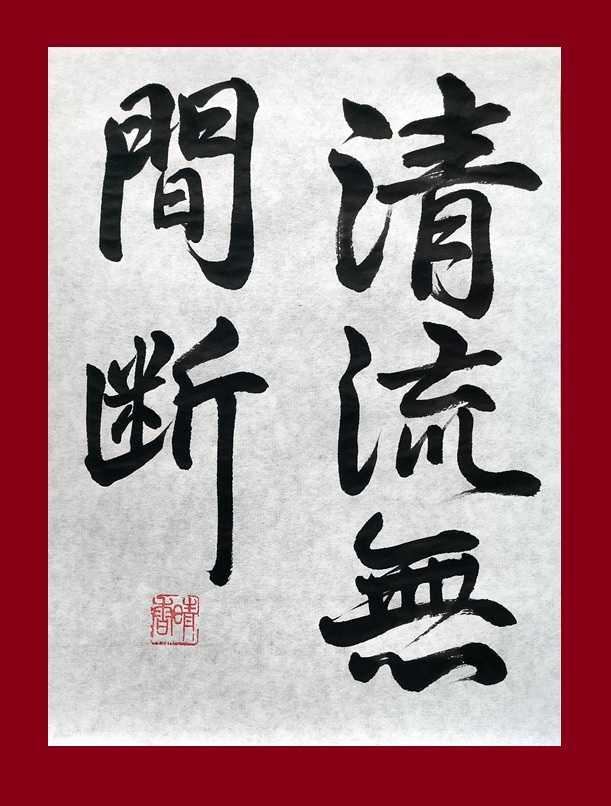 清流無
間断
晴香